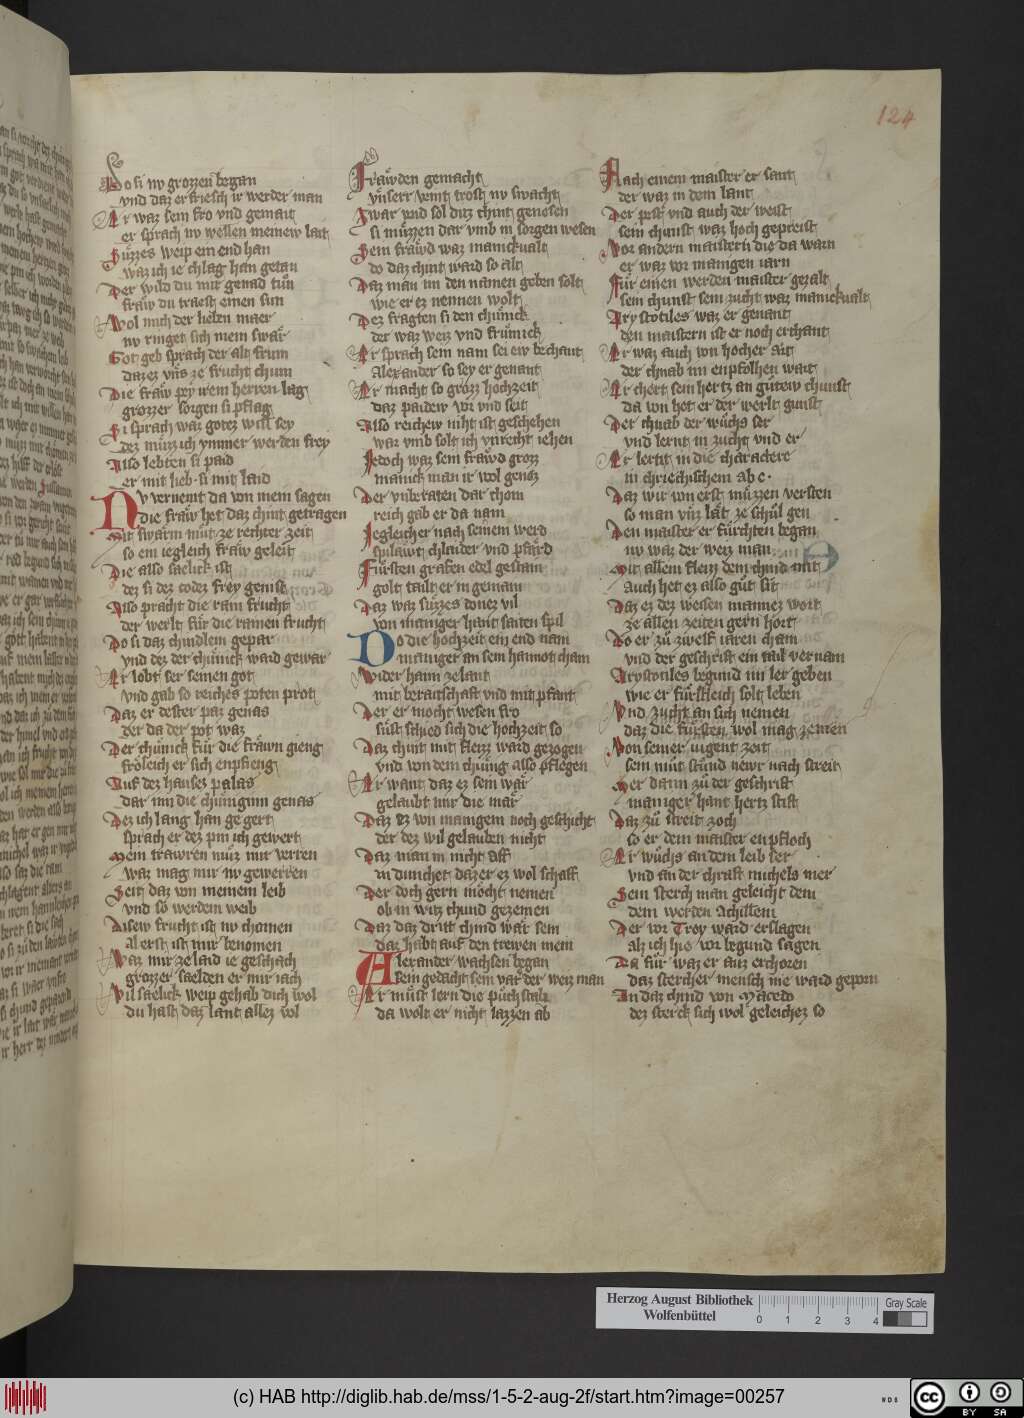 124
Do si nv grozzen began
vnd daz er friesch ir werder man
Er waz sein fro vnd gemait
er sprach nv wellen meinew lait
Suͤzzes weip ein end han
waz ich ie chlag han getan
Der wild du mit genad tuͤn
fraw du traest einen sun
Wol mich der lieben maer
nv ringet sich mein swaͤr
Got geb sprach der alt frum
daz ez vns ze frucht chum
Die fraw pey irem herren lag
grozzer sorgen si pflag
Si sprach waz gotez will sey
dez muͤzz ich ymmer werden frey
Also lebten si paid
er mit lieb si mit laid
Nv vernemt da von mein sagen
die fraw het daz chint getragen
Mit swarm muͤt ze rechter zeit
so ein iegleich fraw geleit
Die also saelick ist
dez si dez todez frey genist
Also pracht die rain frucht
der werlt fuͤr die rainen frucht
Do si daz chindlein gepar
vnd dez der chuͤnick ward gewar
Er lobt ser seinen got
vnd gab so reiches poten prot
Daz er dester paz genas
der da der pot waz
Der chuͤnick fuͤr die frawn gieng
froleich er sich enpfieng
Auf dez hauses palas
dar inn die chuͤniginn genas
Dez ich lang han ge gert
sprach er dez pin ich gewert
Mein trawren muͤz mir verren
waz mag mir nv gewerren
Seit daz von meinem leib
vnd so werdem weib
Disew frucht ist nv chomen
al erst ist mir benomen
Waz mir ze laid ie geschach
grozzer saelden er mir iach
Vil saelick weip gehab dich wol
du hast daz lant allez vol
Frawden gemacht
vnserr veint trost nv swacht
Zwar vnd sol ditz chint genesen
si muͤzzen dar vmb in sorgen wesen
Sein frawd waz manickualt
do daz chint ward so alt
Daz man im den namen geben solt
wie er ez nennen wolt
Dez fragten si den chuͤnick
der waz weiz vnd fruͤmick
Er sprach sein nam sei ew bechant
Alexander so sey er genant
Er macht so grozz hochzeit
daz paidew vor vnd seit
Also reichew niht ist geschehen
war vmb solt ich vnrecht iehen
Jedoch waz sein frawd grozz
manick man ir wol genoz
Der vnberaten dar chom
reich gab er da nam
Jegleicher nach seinem werd
spilawt chlaider vnd pfaͤrd
Fuͤrsten grafen edel gestain
golt tailt er in gemain
Daz waz suͤzzes donez vil
von maniger hant saiten spil
Do die hochzeit ein end nam
maniger an sein haimot cham
Wider haim ze lant
mit beraitschaft vnd mit pfant
Der er mocht wesen fro
suͤst schied sich die hochzeit so
Daz chint mit fleizz ward gezogen
vnd von dem chuͤnig also pflegen
Er want daz ez sein waͤr
gelaubt mir die maͤr
Daz ez von manigem noch geschicht
der dez wil gelauben nicht
Daz man in nicht aff
in dunchet daz er ez wol schaff
Der doch gern mocht nemen
ob in witz chund gezemen
Daz daz dritt chind waͤr sein
daz habt auf den trewen mein
Alexander wachsen began
Sein gedacht sein vater der weiz man
Er muͤst lern die puͤch stab
da wolt er nicht lazzen ab
Nach einem maister er sant
der waz in dem lant
Der pest vnd auch der weist
sein chunst waz hoch gepreist
Vor andern maistern die da warn
er waz vor manigen iarn
Fuͤr einen werden maister gezalt
sein chunst sein zucht waz manickualt
Arystotiles waz er genant
den maistern ist er noch erchant
Er waz auch von hocher art
der chnab im enpfolhen wart
Er chert sein hertz an guͤtew chunst
da von het er der werlt gunst
Der chnab der wuͤchs ser
vnd lernt in zucht vnd er
Er lertit in die charactere
in chriechischem a b c
Daz wir von erst muͤzzen versten
so man vnz laͤt ze schuͤl gen
Den maister er fuͤrchten began
nv waz der weiz man
Mit allem fleizz dem chind mit
Auch het ez also guͤt sit
Daz ez dez weisen mannez wort
ze allen zeiten gern hort
Do er zuͤ zwelf iaren cham
vnd der geschrift ein tail vernam
Arystotiles begund im ler geben
wie er fuͤrstleich solt leben
Vnd zucht an sich nemen
daz die fuͤrsten wol mag zemen
Von seiner iugent zeit
sein muͤt stuͤnd newr nach streit
Mer dann zuͤ der geschrift
maniger hant hertz stift
Daz zuͤ streit zoch
so er dem maister enpfloch
Er wuͤchs an dem leib ser
vnd an der chraft michels mer
Sein sterch man geleicht dem
dem werden Achillem
Der vor Troy ward erslagen
alz ich hie vor begund sagen
Da fuͤr waz er auz erchoren
daz stercher mensch nie ward geporn
In daz chind von Macedo
dez sterck sich wol geleichez so
Herzog August Bibliothek
Wolfenbüttel
0 1 2 3 4
Gray Scale
(c) HAB http://diglib.hab.de/mss/1-5-2-aug-2f/start.htm?image=00257
WDB
CC BY SA